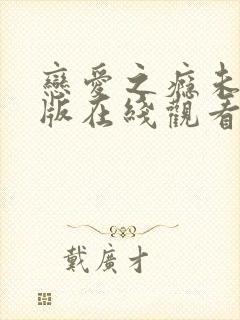 戀愛之癮未
版在綫觀看
戴廣才